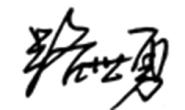 路世勇